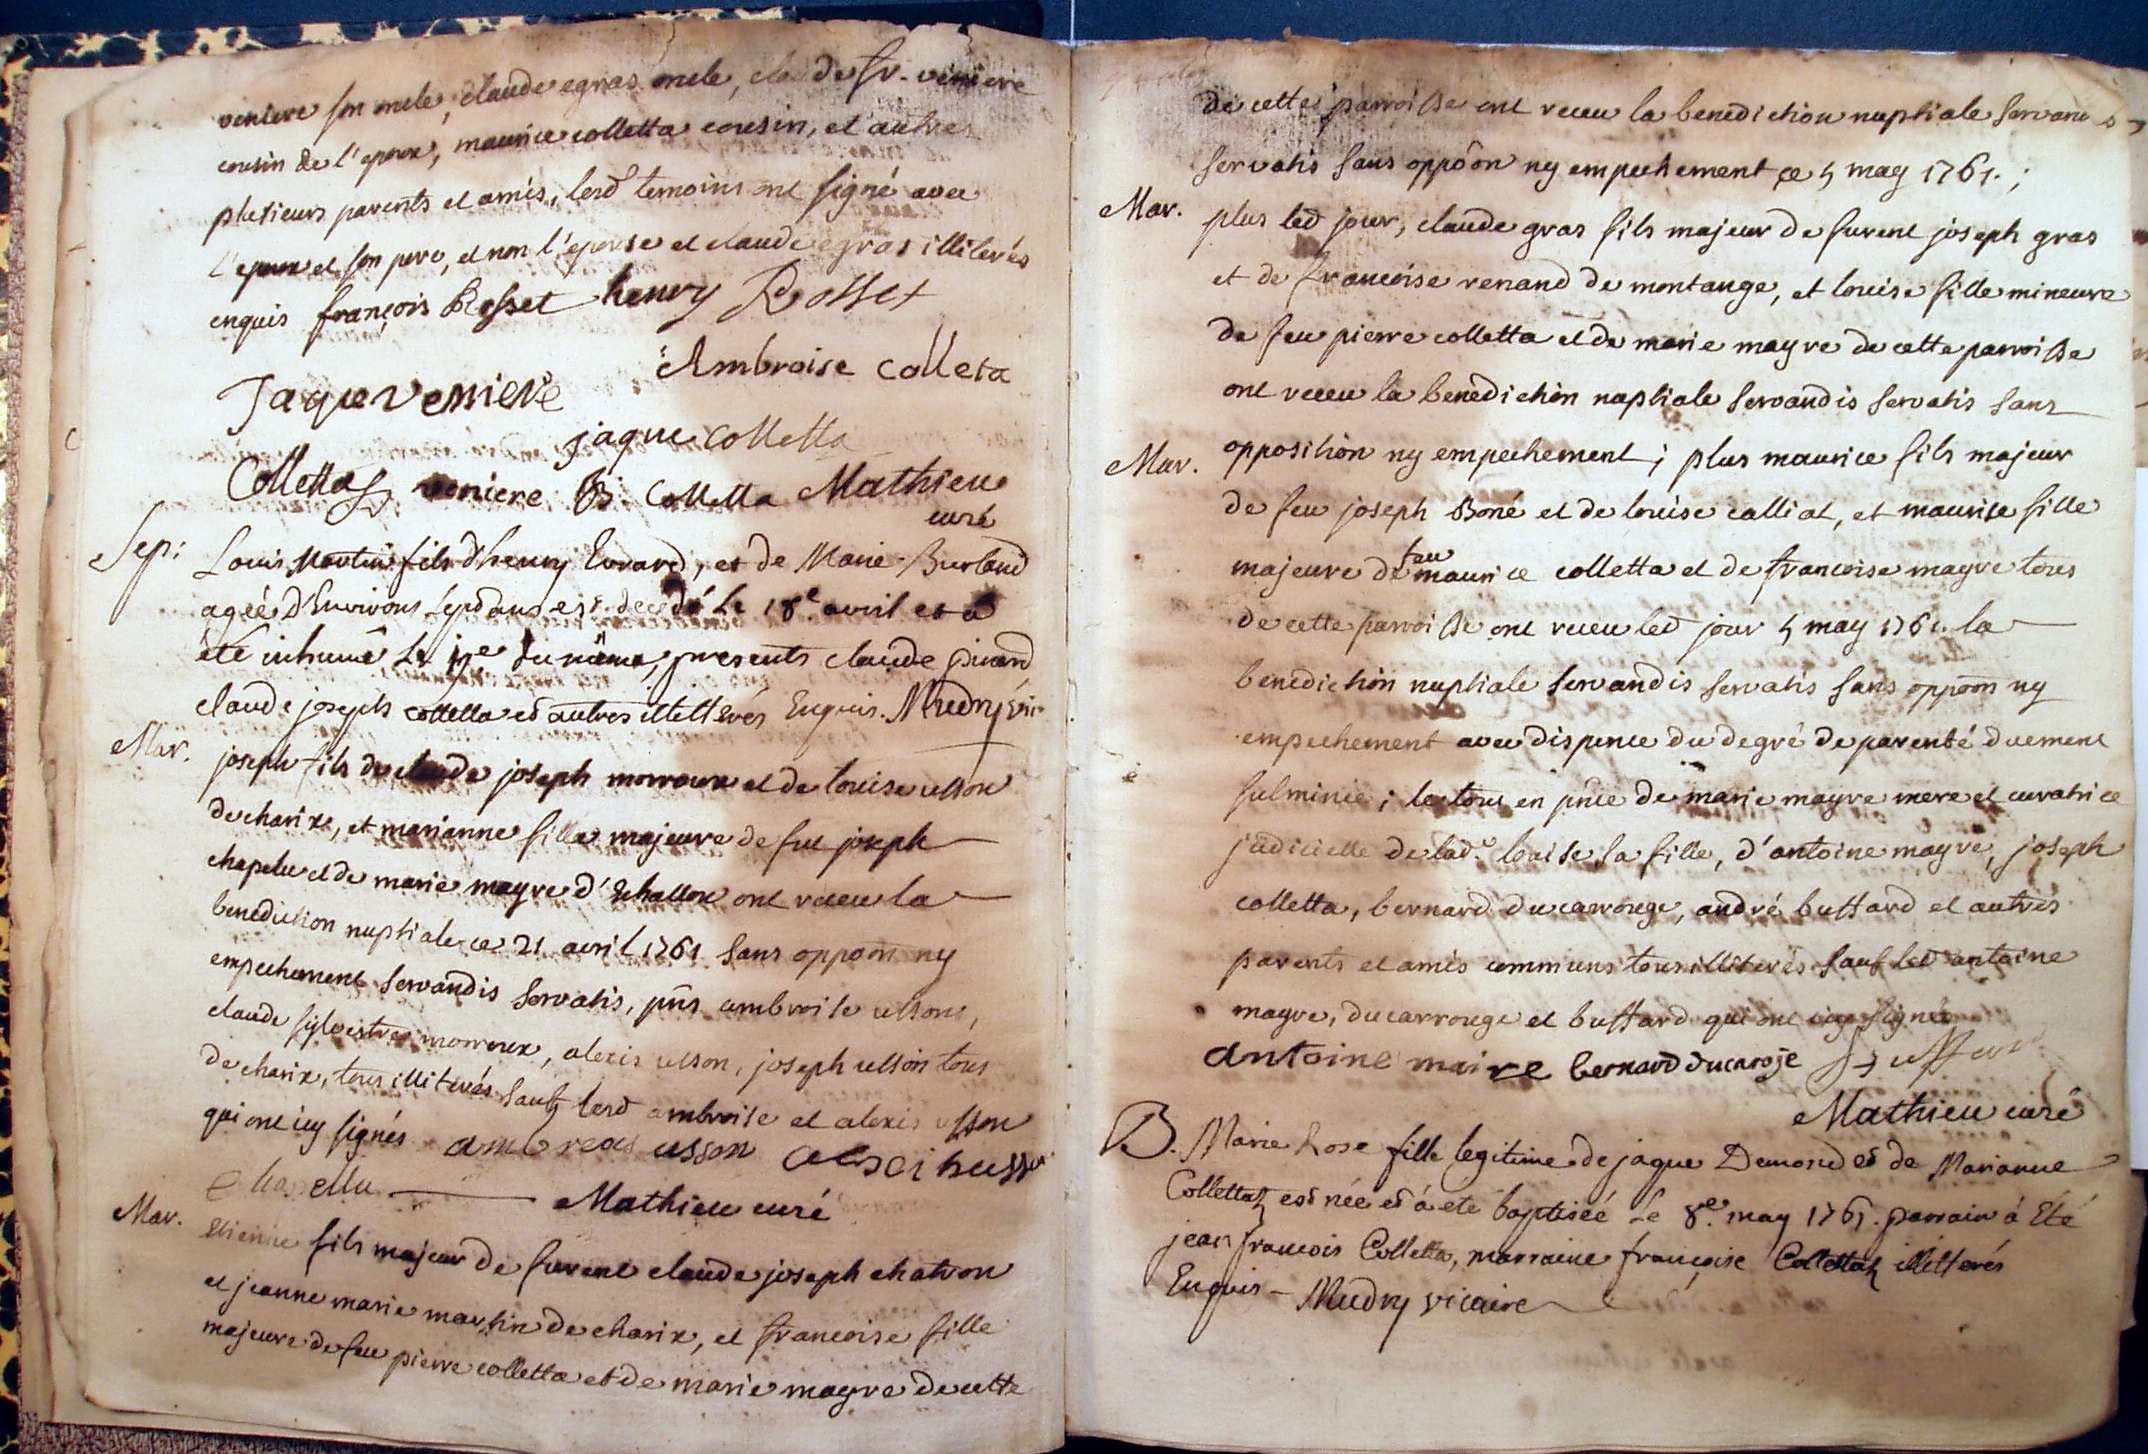 veniere son oncle, claude egras oncle, claude fr. veniere
cousin de l'epoux, maurice colletta cousin, et autres
plusieurs parents et amis, lesd temoins ont signé avec
l'epoux et son pere, et non l'epouse et claude egras illiterés
enquis françois Rosset henry Rosset
Ambroise Colleta
Jaque veniere
jaque Colletta
Collettaz veniere B. Colletta Mathieu
curé
Sep: Louis Martin fils d'henry Evrard, et de Marie Burland
ageé d'Environs sept ans est decedé Le 18e avril et a
eté inhumé Le 19e du même, presents claude pinard,
claude joseph colletta et autres illetterés Enquis. Mudry vic.
Mar. joseph fils de claude joseph morroux et de louise usson
de charix, et marianne fille majeure de feu joseph
chapelu et de marie mayre d'Echallon ont receu la
benediction nuptiale ce 21 avril 1761 sans oppoōn ny
empechement servandis servatis, pñs ambroise ussons,
claude sylvestre morroux, alexis usson, joseph usson tous
de charix, tous illiterés sauf lesd ambroise et alexis usson
qui ont icy signés ambreois usson alexi husson
Chapellu Mathieu curé
Mar. Etienne fils majeur de furent claude joseph chatron
et jeanne marie martin de charix, et francoise fille
majeure de feu pierre colletta et de marie mayre de cette
de cette parroisse ont receu la benediction nuptiale servandis
servatis sans oppôon ny empechement ce 5 may 1761. ;
Mar. plus led jour, claude gras fils majeur de furent joseph gras
et de francoise renand de montange, et louise fille mineure
de feu pierre colletta et de marie mayre de cette parroisse
ont receu la benediction nuptiale servandis servatis sans
Mar. opposition ny empechement ; plus maurice fils majeur
de feu joseph Boné et de louise calliat, et maurise fille
majeure de feu maurice colletta et de francoise mayre tous
de cette parroisse ont receu led jour 5 may 1761. la
benediction nuptiale servandis servatis sans oppoōn ny
empechement avec dispence du degré de parenté duement
fulminée ; le tout en pñce de marie mayre mere et curatrice
judicielle de lad.e louise sa fille, d'antoine mayre, joseph
colletta, bernard ducarrouge, andré buffard et autres
parents et amis communs tous illiterés sauf led antoine
mayre, ducarrouge et buffard qui ont icy signé
antoine maire bernard ducaroje
Mathieu curé
B. Marie Rose fille legitime de jaque Demond et de Marianne
Collettaz est née et á eté baptisée Le 8e. may 1761. parrain á Eté
jean francois Colletta, marraine françoise Collettaz illetterés
Enquis - Mudry vicaire